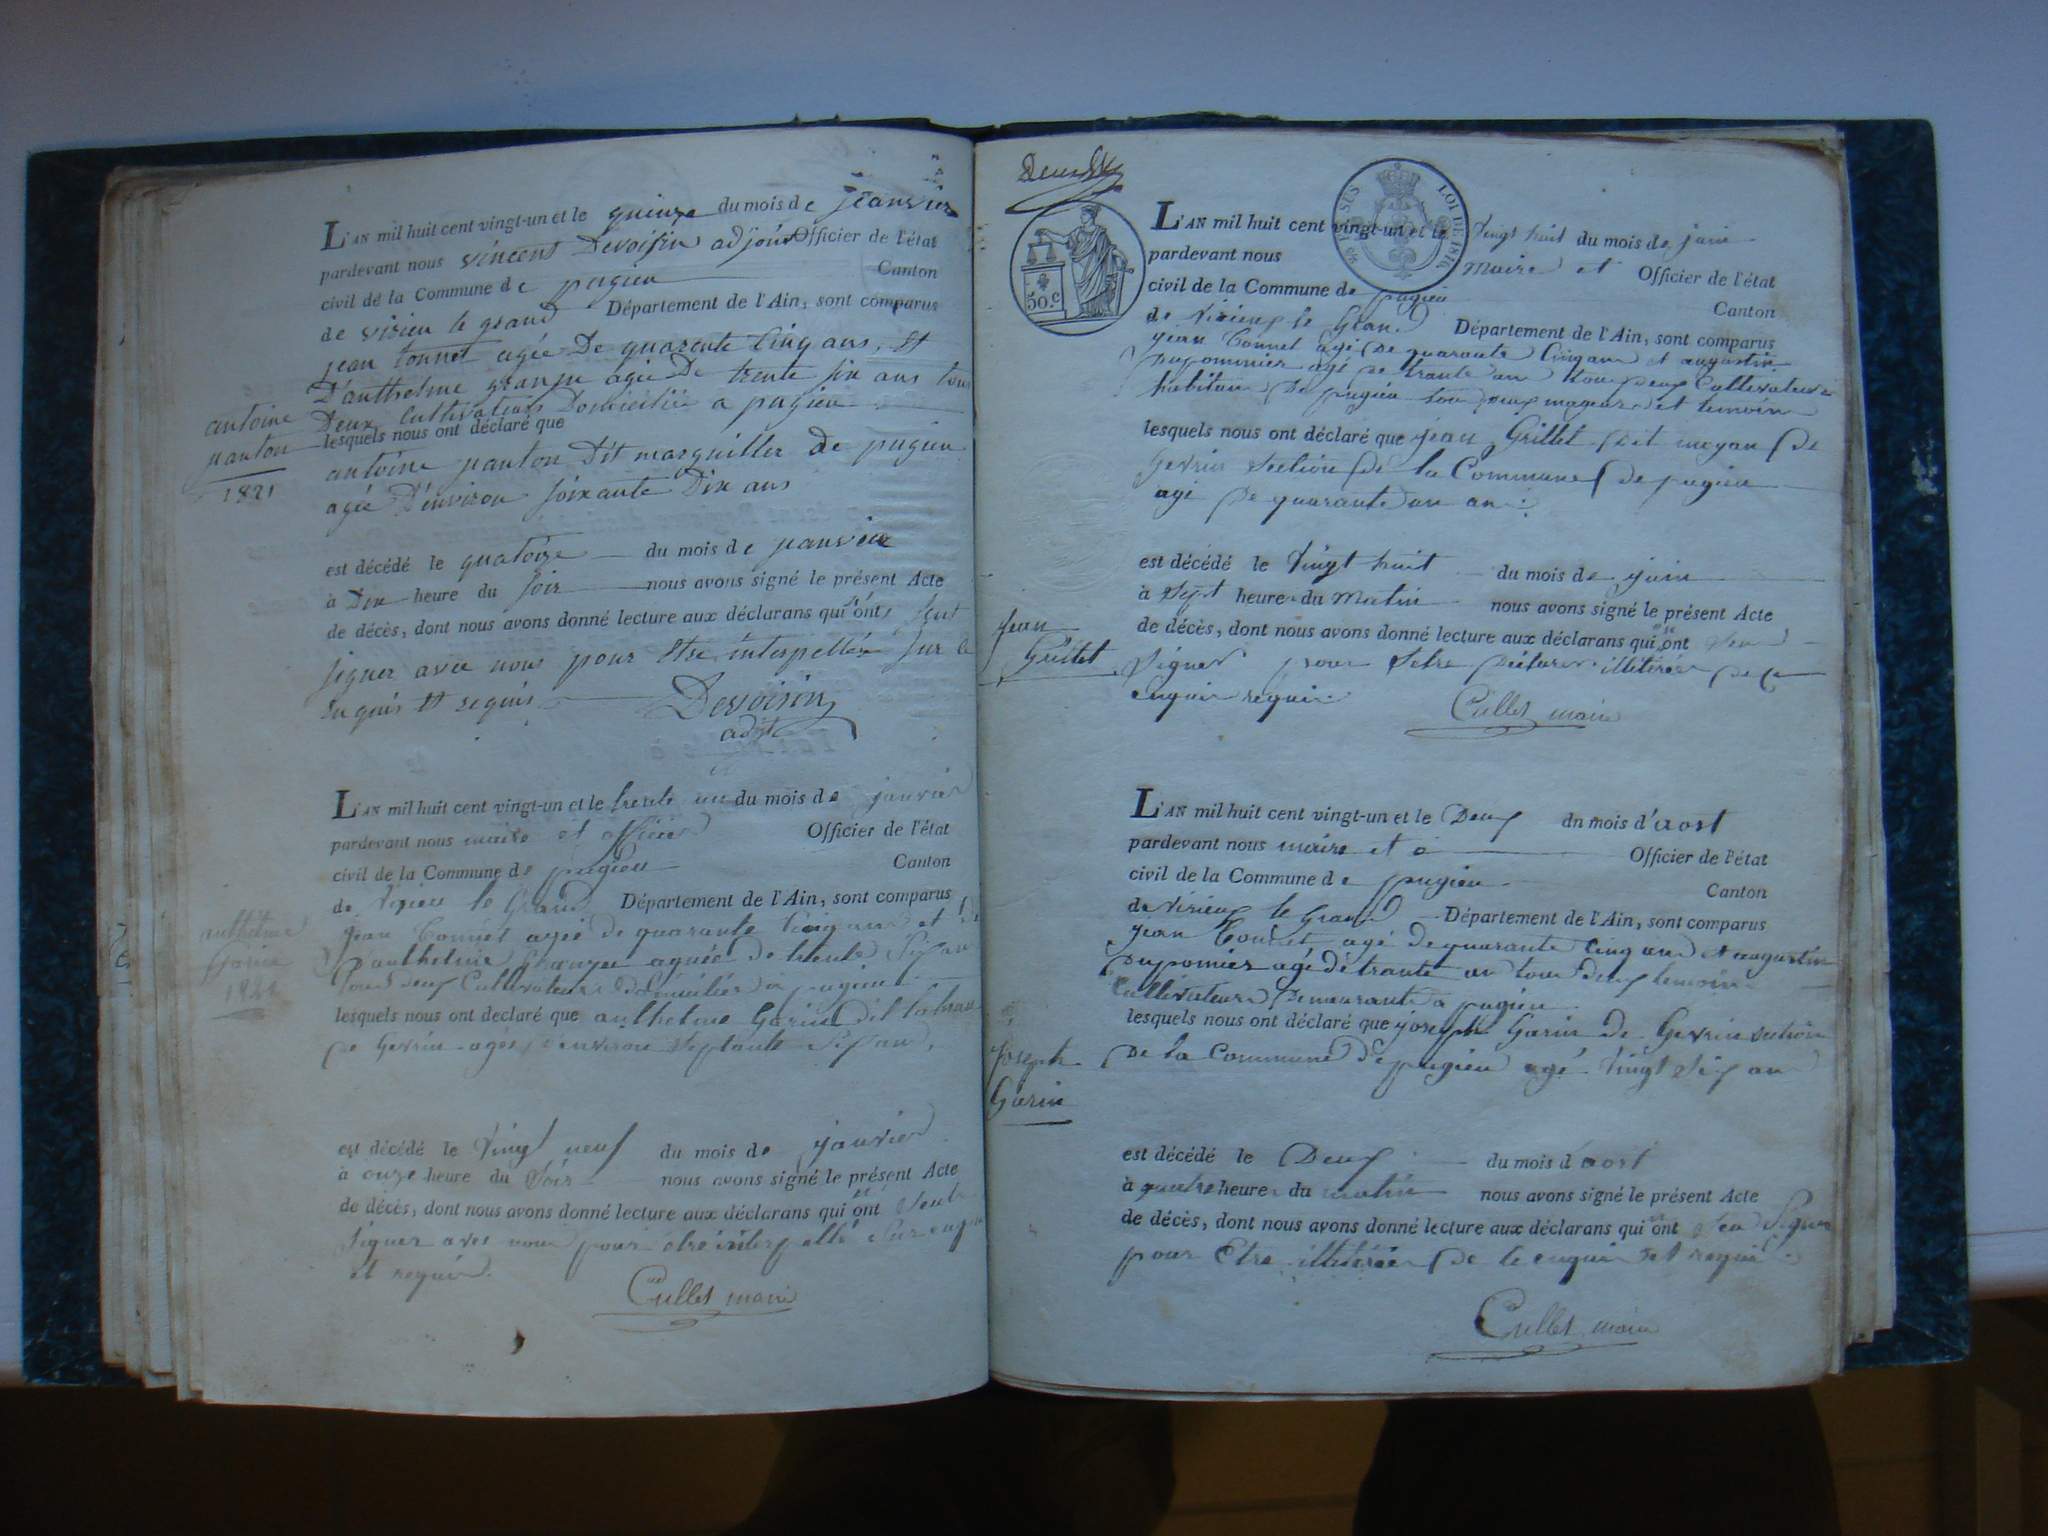 L'AN mil huit cent vingt-un et le quinze du mois de jeanvier
pardevant nous vincent Devoisin adjoint Officier de l'état
civil de la Commune de pugieu Canton
de virieu le grand Département de l'Ain, sont comparus
jean tonnet agée De quarente Cinq ans, et
D'anthelme granju agée De trente six ans tous
Deux Cultivateurs Domiciliée a pugieu
antoine
panton
1821
lesquels nous ont déclaré que
antoine panton Dit marguiller de pugieu
agée D'environ soixante Dix ans
est décédé le quatorze du mois de janvier
à Dix heure du soir nous avons signé le présent Acte
de décès, dont nous avons donné lecture aux déclarans qui ont
signer avec nous pour être interpellés sur ce
enquis et requis
Devoisin
adjt
L'AN mil huit cent vingt-un et le trente un du mois de janvier
pardevant nous maire et officier Officier de l'état
civil de la Commune de pugieu Canton
de Virieu le Grand Département de l'Ain, sont comparus
jean Connet agée de quarante Cinq ans et
anthelme agnée de trente Six ans
tous deux Cultivateurs domiciliés a pugieu
anthelme
Garin
1821
lesquels nous ont declaré que anthelme Garin dit
de Gevrin agés d'environ septante Six ans,
est décédé le Vingt neuf du mois de janvier
à onze heure du Soir nous avons signé le présent Acte
de décès, dont nous avons donné lecture aux déclarans qui ont
Signer avec nous pour être interpellé Sur enquis
et requis.
Cullet maire
Deux
50.c
LOI DE 1816
L'AN mil huit cent vingt-un et le Vingt huit du mois de juin
pardevant nous Maire et Officier de l'état
civil de la Commune de pugieu Canton
de Virieux le Grand Département de l'Ain, sont comparus
jean Connet agé de quarante Cinq ans et augustin
pupommier agé de trante an tous deux Cultivateurs
habitans De pugieu tous deux majeurs et temoins
lesquels nous ont déclaré que jean Grillet dit moyan De
Gevrin section de la Commune De pugieu
agé De quarante un an
est décédé le Vingt huit du mois de juin
à Sept heure du Matin nous avons signé le présent Acte
de décès, dont nous avons donné lecture aux déclarans qui ont
Jean
Grillet
Signer pour illitérés de ce
enquis requis
Cullet maire
L'AN mil huit cent vingt-un et le Deux dn mois d'aost
pardevant nous maire et o Officier de l'état
civil de la Commune de pugieu Canton
de Virieux le Grand Département de l'Ain, sont comparus
jean Connet agé de quarante Cinq ans et augustin
pupomier agé de trante an tous deux temoins
Cultivateurs Demeurants a pugieu
Joseph
Garin
lesquels nous ont déclaré que joseph Garin de Gevrin section
De la Commune de pugieu agé Vingt Six ans
est décédé le Deux du mois d'aost
à quatre heure du matin nous avons signé le présent Acte
de décès, dont nous avons donné lecture aux déclarans qui ont Signer
pour Etre illitérés De ce enquis et requis
Cullet maire